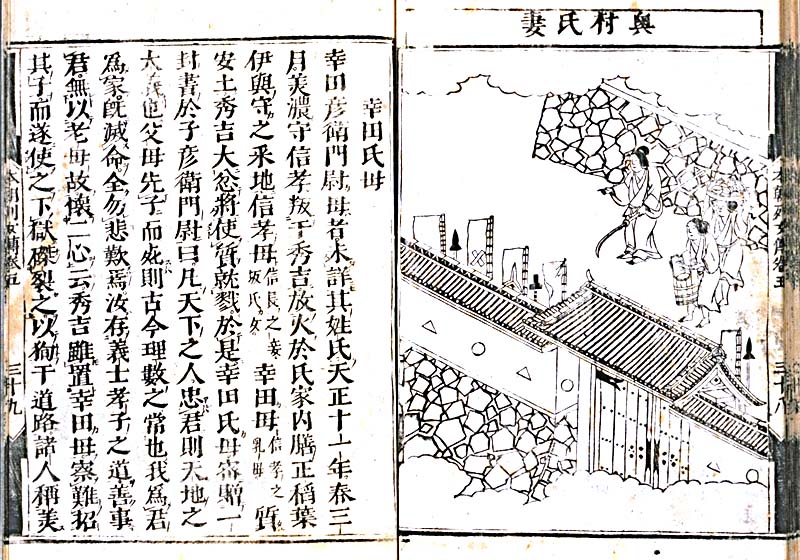 奧村氏妻
本朝列女傳卷五 三十八
幸田氏母
幸田彥衛門尉母者未詳其姓氏天正十一年春三
月美濃守信孝叛于秀吉放火於氏家內膳正稻葉
伊與守之釆地信孝母信長之妾坂氏女幸田母信孝之乳母質
安土秀吉大忿將使質就戮於是幸田氏母密贈一
封書於子彥衛門尉曰凡天下之人忠君則天地之
大義也父母先子而死則古今理數之常也我爲君
爲家旣滅命全勿悲歎焉汝存義士孝子之道善事
君無以老母故懷二心云秀吉雖置幸田母寮難招
其子而遂使之下獄磔裂之以狥于道路諸人稱美
本朝列女傳卷五 三十九